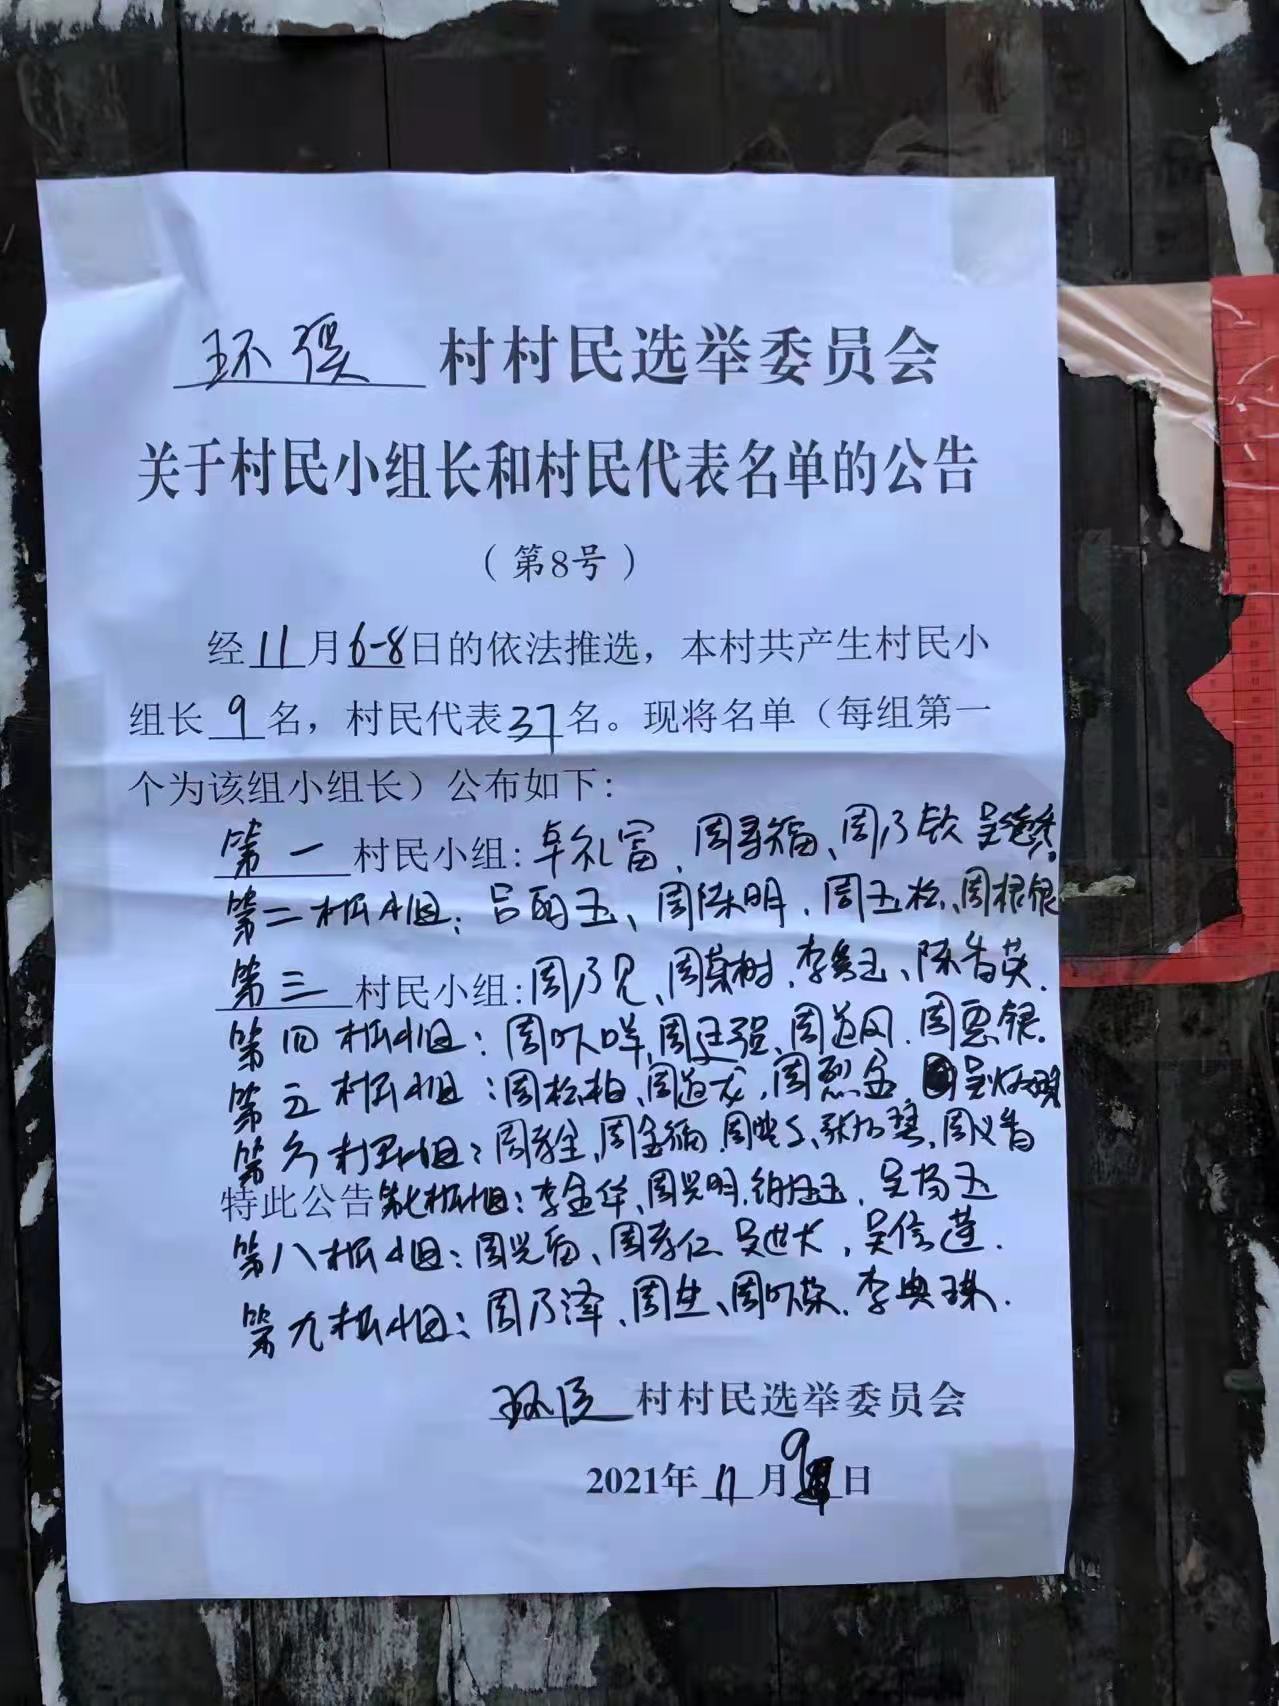 环溪 村村民选举委员会
关于村民小组长和村民代表名单的公告
（第8号）
经11月6-8日的依法推选，本村共产生村民小
组长9名，村民代表37名。现将名单（每组第一
个为该组小组长）公布如下：
第一村民小组：卓礼富、周寿福、周乃钦
第二村民小组：吕 玉、周陈明、周玉松、周根银
第三村民小组：周乃见、周真树、李 玉、陈香英.
第四村民小组：周 周廷强、周道 .周 银.
第五村民小组：周松柏、周道龙，周烈金 吴
第六村民小组：周 周金 周 周义香
特此公告 第七村民小组：李金华、周兴明、 玉、吴 玉
第八村民小组：周光 、周孝仁 吴世大，吴信莲.
第九村民小组：周乃泽、周生、周 .李典 .
村村民选举委员会
2021年11月9日